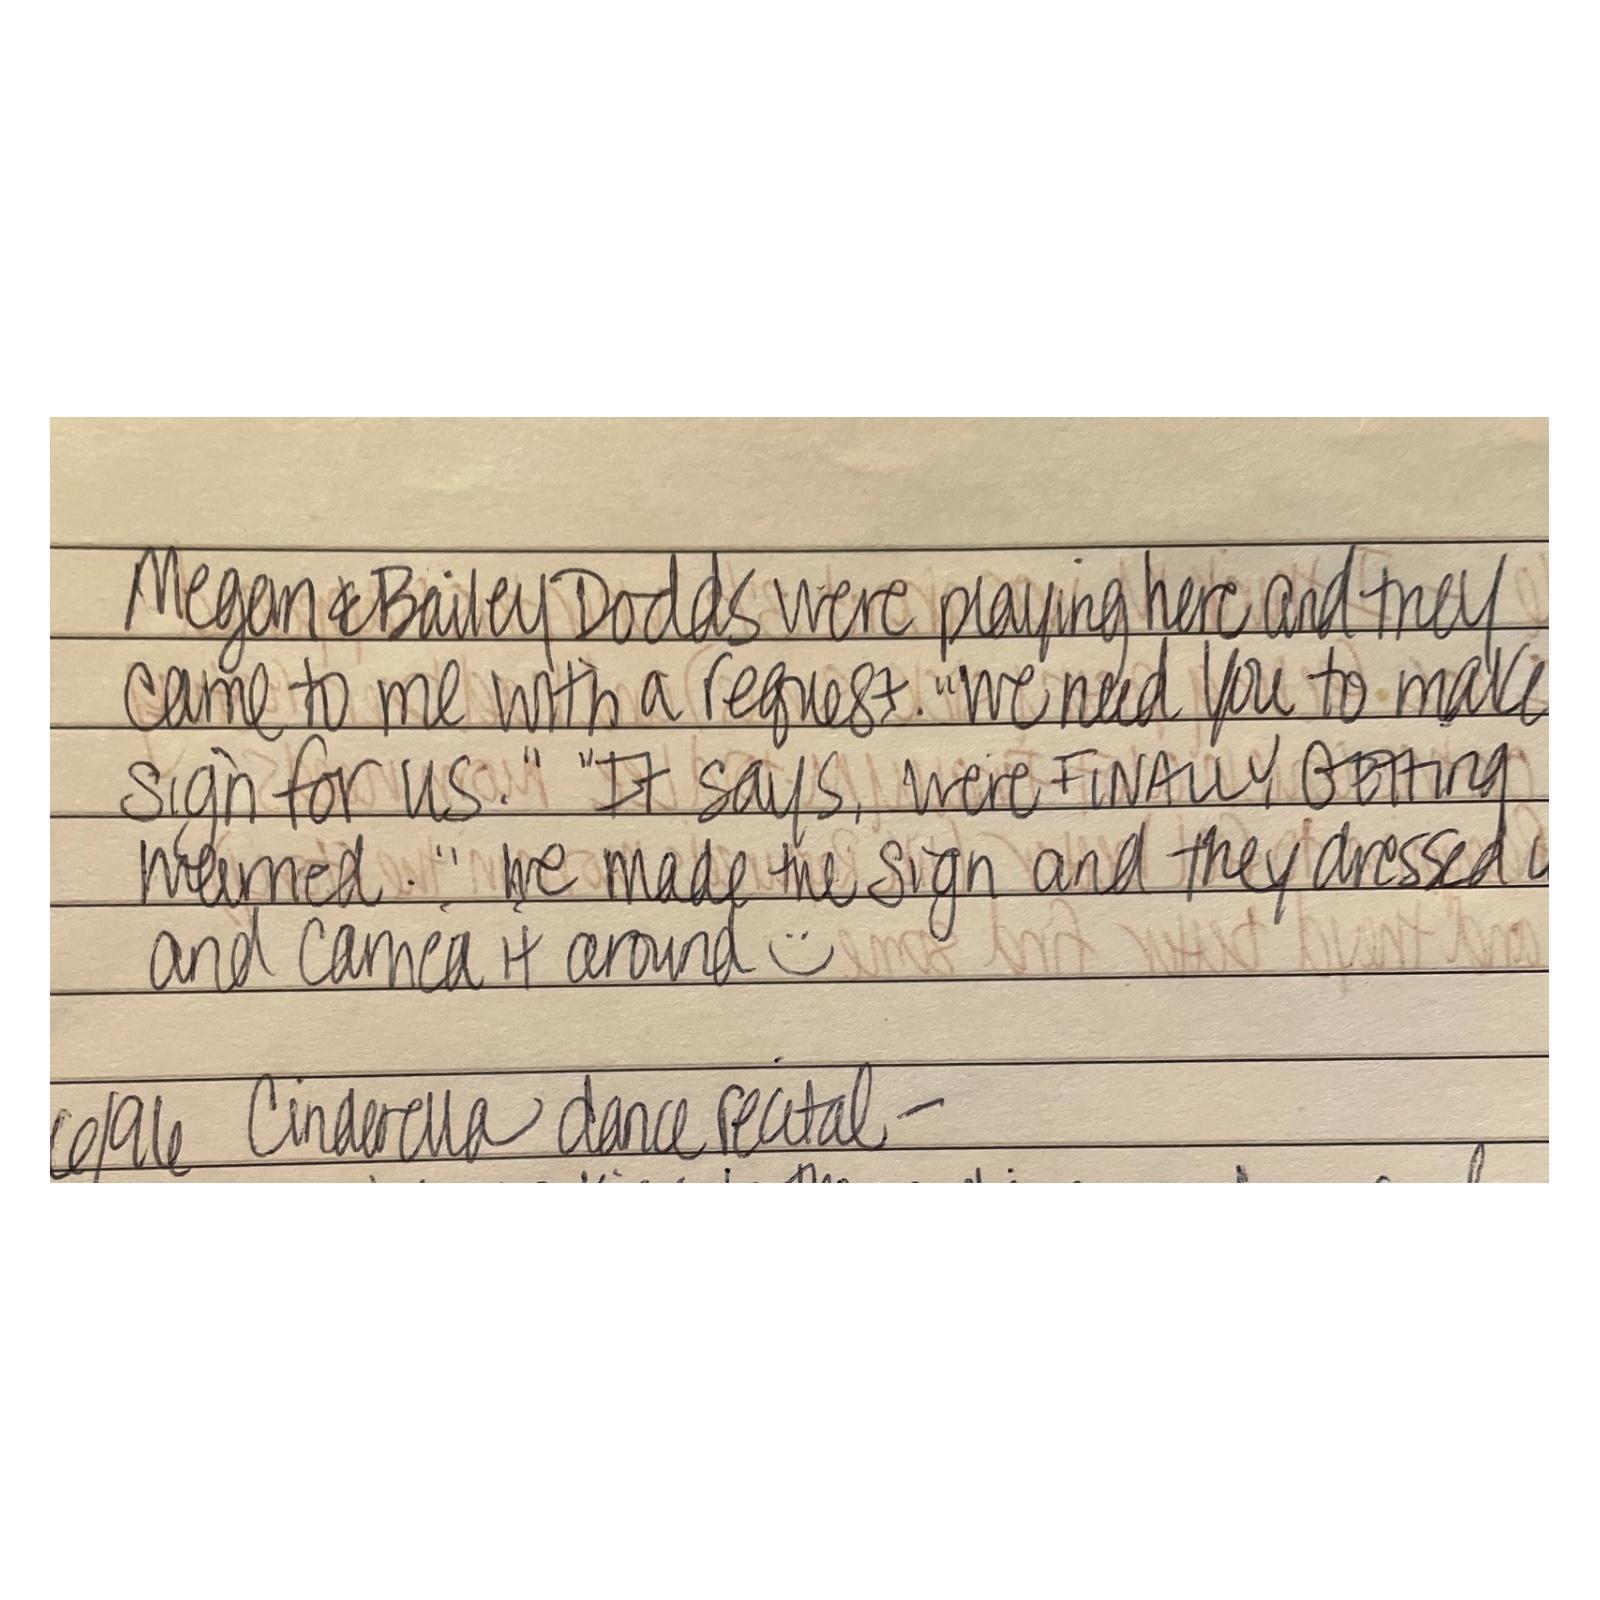 Megan & Bailey Dodds were playing here and they
came to me with a request. "We need you to make
sign for us." "It says, were FINALLY GETTING
married." We made the sign and they dressed u
and carried it around :)
6/96 Cinderella dance recital -